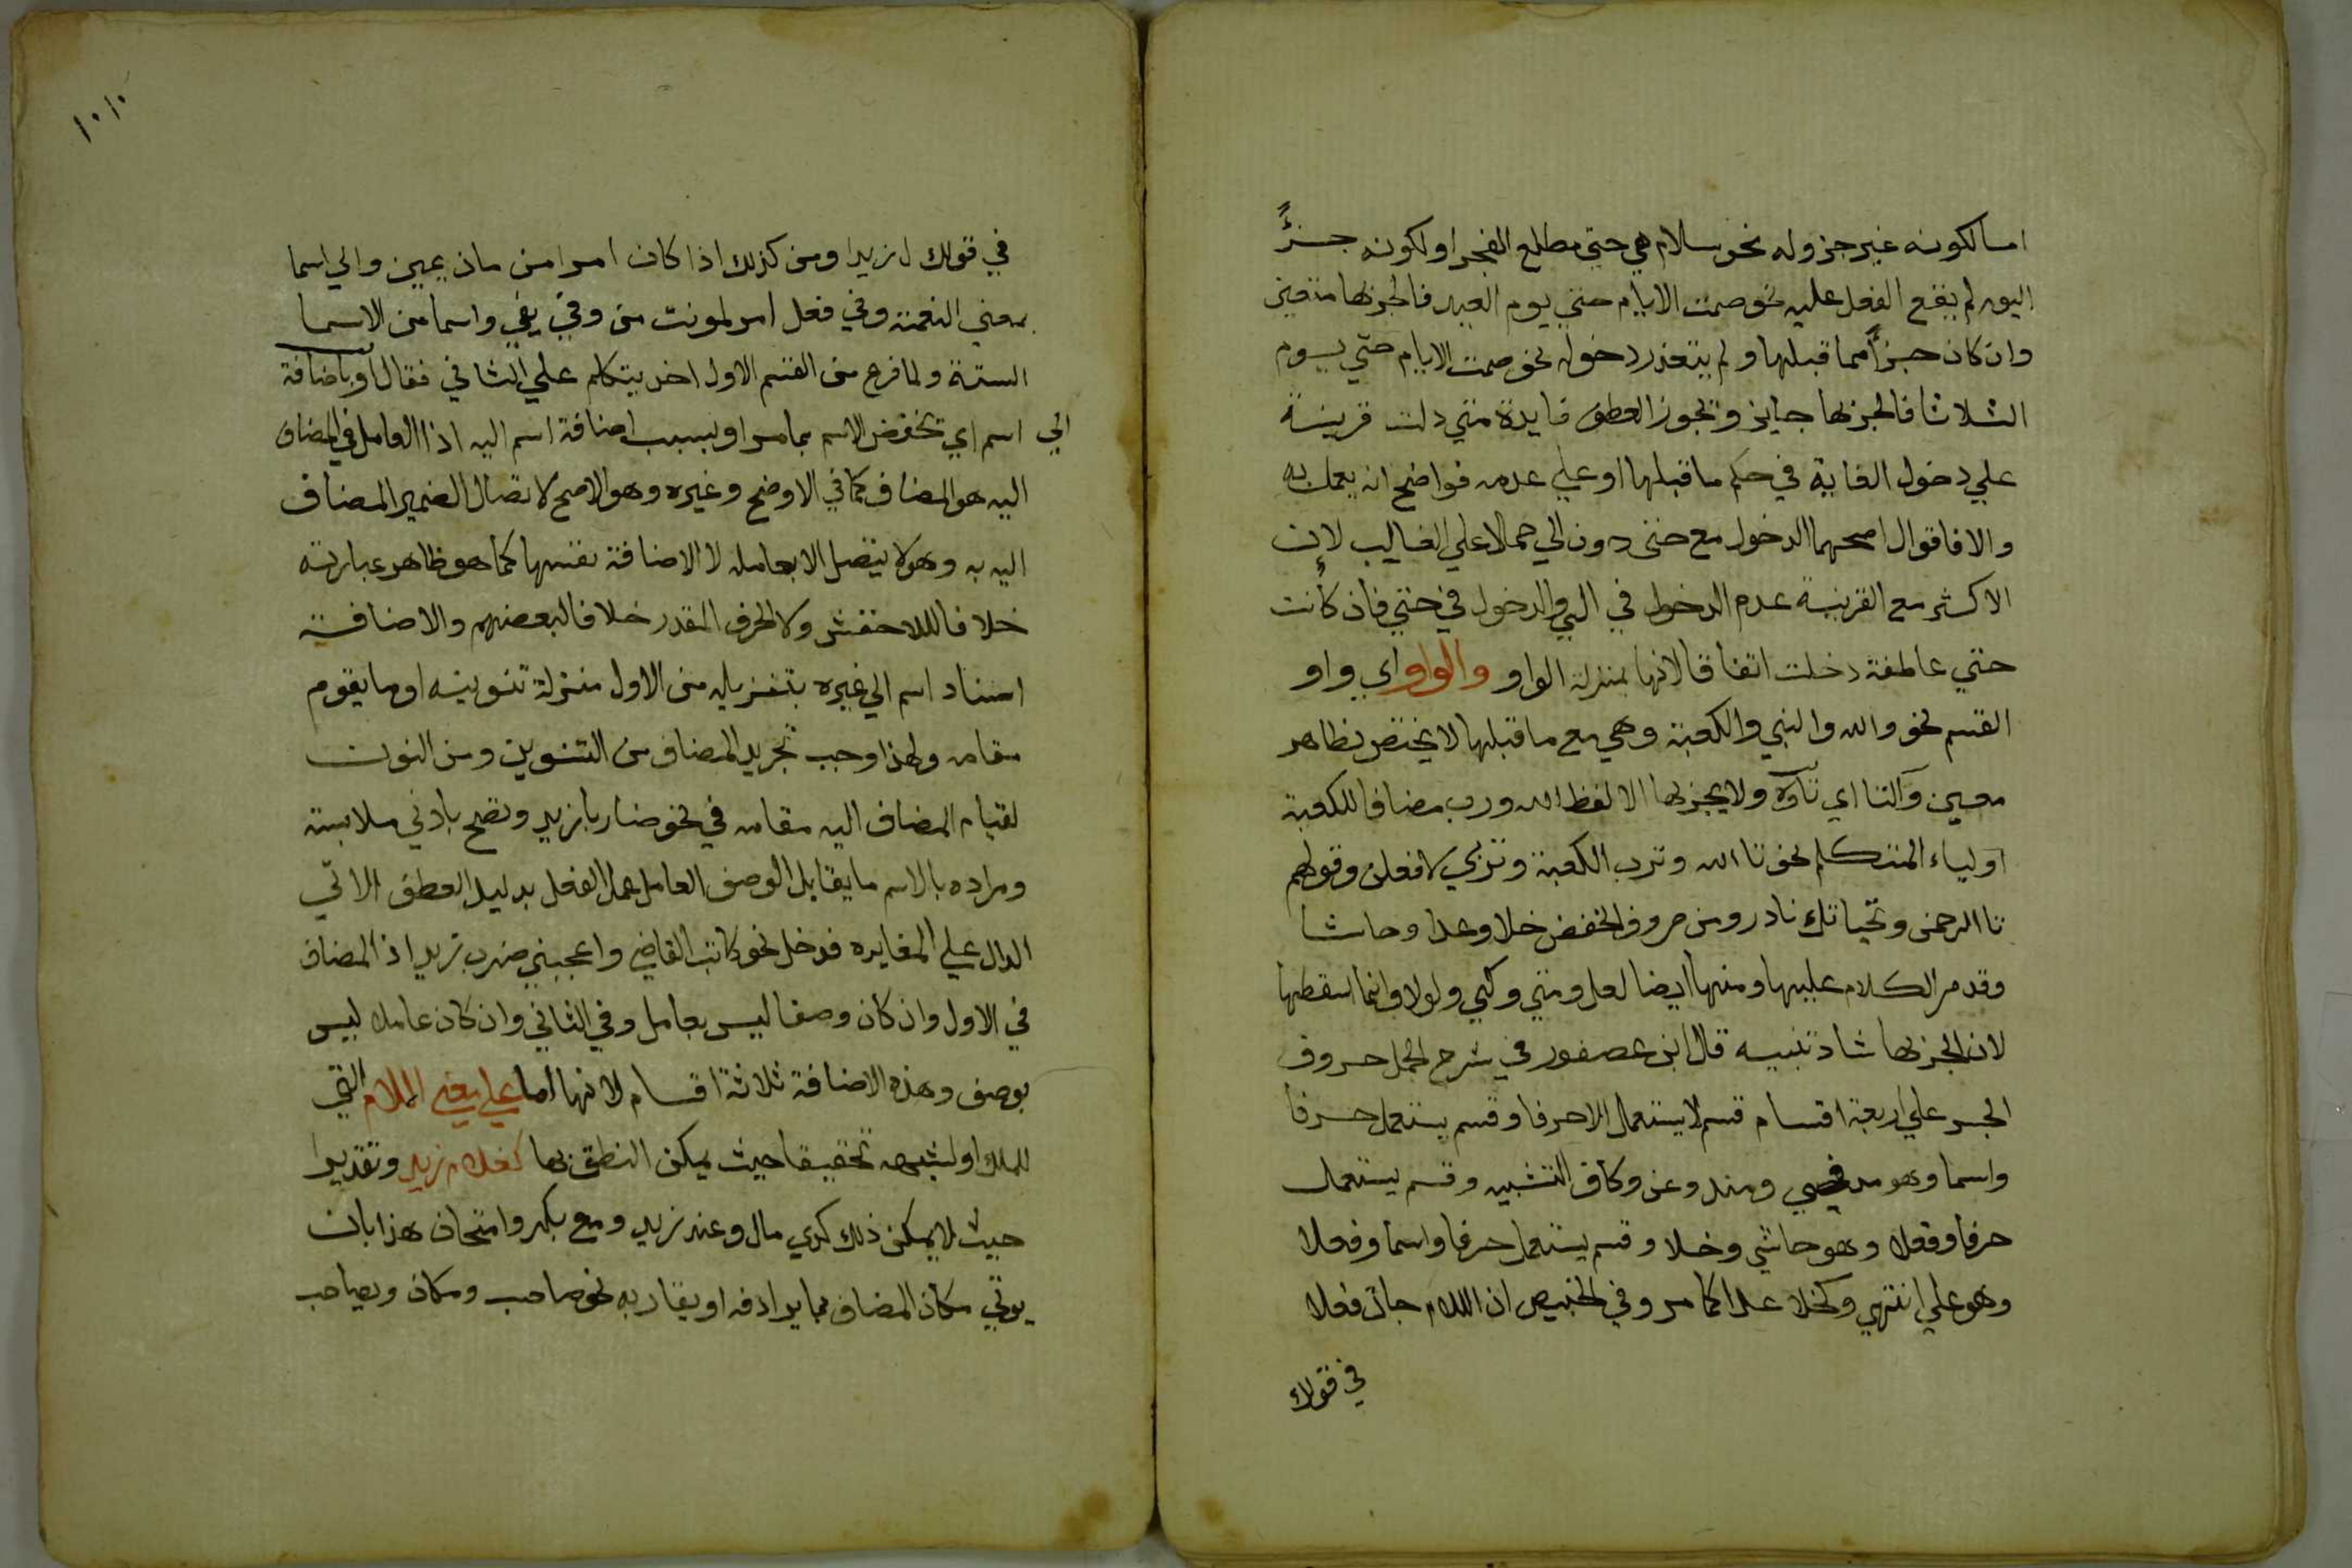 اما لكونه غير جزوله نحو سلام هي حتي مطلع الفجر او لكونه جزءً
اليوم لم يقع الفعل عليه نحو صمت الايام حتي يوم العيد فالجر بها متعين
وان كان جزءً مما قبلها ولم يتعذر دخوله نحو صمت الايام حتي يوم
الثلاثا فالجر بها جايز ويجوز العطف فايدة متي دلت قرينة
علي دخول الغاية في حكم ما قبلها او علي عدمه فواضح انه يعمل به
والا فاقوال اصحهما الدخول مع حتي دون الي حملا علي الغالب لان
الاكثر مع القرينة عدم الدخول في الي والدخول في حتي فان كانت
حتي عاطفة دخلت اتفاقا لانها بمنزلة الواو والواو اي واو
القسم نحو والله والنبي والكعبة وهي مع ما قبلها لا يختص بظاهر
معين والتا اي تاوه ولا يجر بها الا لفظ الله ورب مضافا للكعبة
او لياء المتكلم نحو تا الله وترب الكعبة وتربي لافعلن وقولهم
تا الرحمن وتحياتك نادر ومن حروف الخفض خلا وعدا وحاشا
وقد مر الكلام عليها ومنها ايضا لعل ومتي وكي ولولا وانما اسقطها
لان الجر بها شاد تنبيه قال ابن عصفور في شرح الجمل حروف
الجر علي اربعة اقسام قسم لا يستعمل الا حرفا وقسم يستعمل حرفا
واسما وهو مد ومند وعن وكاف التشبيه وقسم يستعمل
حرفا وفعلا وهو حاشي وخلا وقسم يستعمل حرفا واسما وفعلا
وهو علي انتهي وكخلا عدا كما مر وفي ان اللام جات فعلا
في قولك
في قولك ل زيدا ومن كذلك اذا كان امرا من مان يمين والي اسما
بمعني النعمة وفي فعل امر لمونت من وفي يفي واسما من الاسما
الستة ولما فرع من القسم الاول اخد يتكلم علي الثاني فقال او باضافة
الي اسم اي تخفض الاسم بما مر او بسبب اضافة اسم اليه اذا العامل في المضاف
اليه هو المضاف كما في الاوضح وغيره وهو الاصح لاتصال الضمير المضاف
اليه به وهو لا يتصل الا بعامله لا الاضافة نفسها كما هو ظاهر عبارته
خلافا للاخفش ولا الحرف المقدر خلافا لبعضهم والاضافة
اسناد اسم الي غيره بتنزيله من الاول منزلة تنوينه او ما يقوم
مقامه ولهذا وجب تجريد المضاف من التنوين ومن النون
لقيام المضاف اليه مقامه في نحو ضاربا زيد وتصح بادني ملابسة
ومراده بالاسم ما يقابل الوصف العامل عمل الفعل بدليل العطف الاتي
الدال علي المغايره فدخل نحو كاتب القاضي واعجبني ضرب زيد اذ المضاف
في الاول وان كان وصفا ليس بعامل وفي الثاني وان كان عاملا ليس
بوصف وهذه الاضافة ثلاثة اقسام لانها اما علي معني اللام التي
للملك او لشبهه تحقيقا حيث يمكن النطق بها كغلام زيد وتقديرا
حيث لا يمكن ذلك كذي مال وعند زيد ومع بكر وامتحان هذا بان
يوتي مكان المضاف بما يرادفه او يقاربه نحو صاحب ومكان ومصاحب